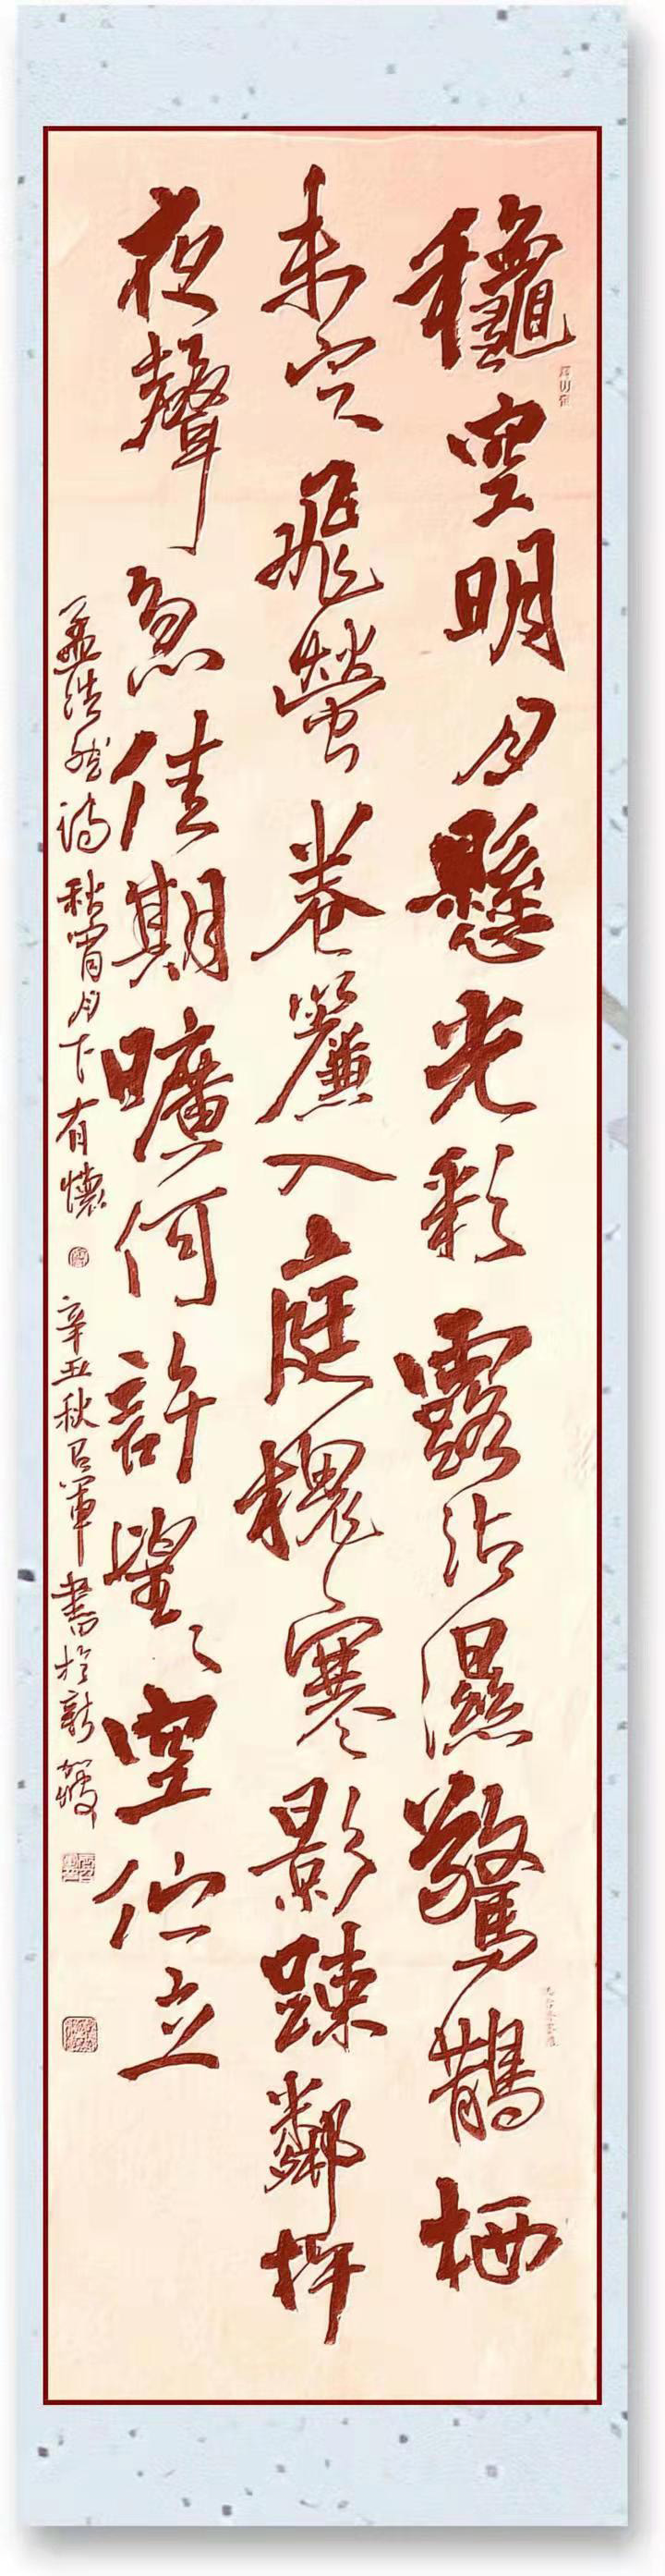 龝空明月懸光彩露沾濕驚鵲栖
未定飛螢卷簾入庭槐寒影踈鄰杵
夜聲急佳期曠何許望々空伫立
孟浩然詩秋宵月下有懷 辛丑秋吕軍書於新加坡